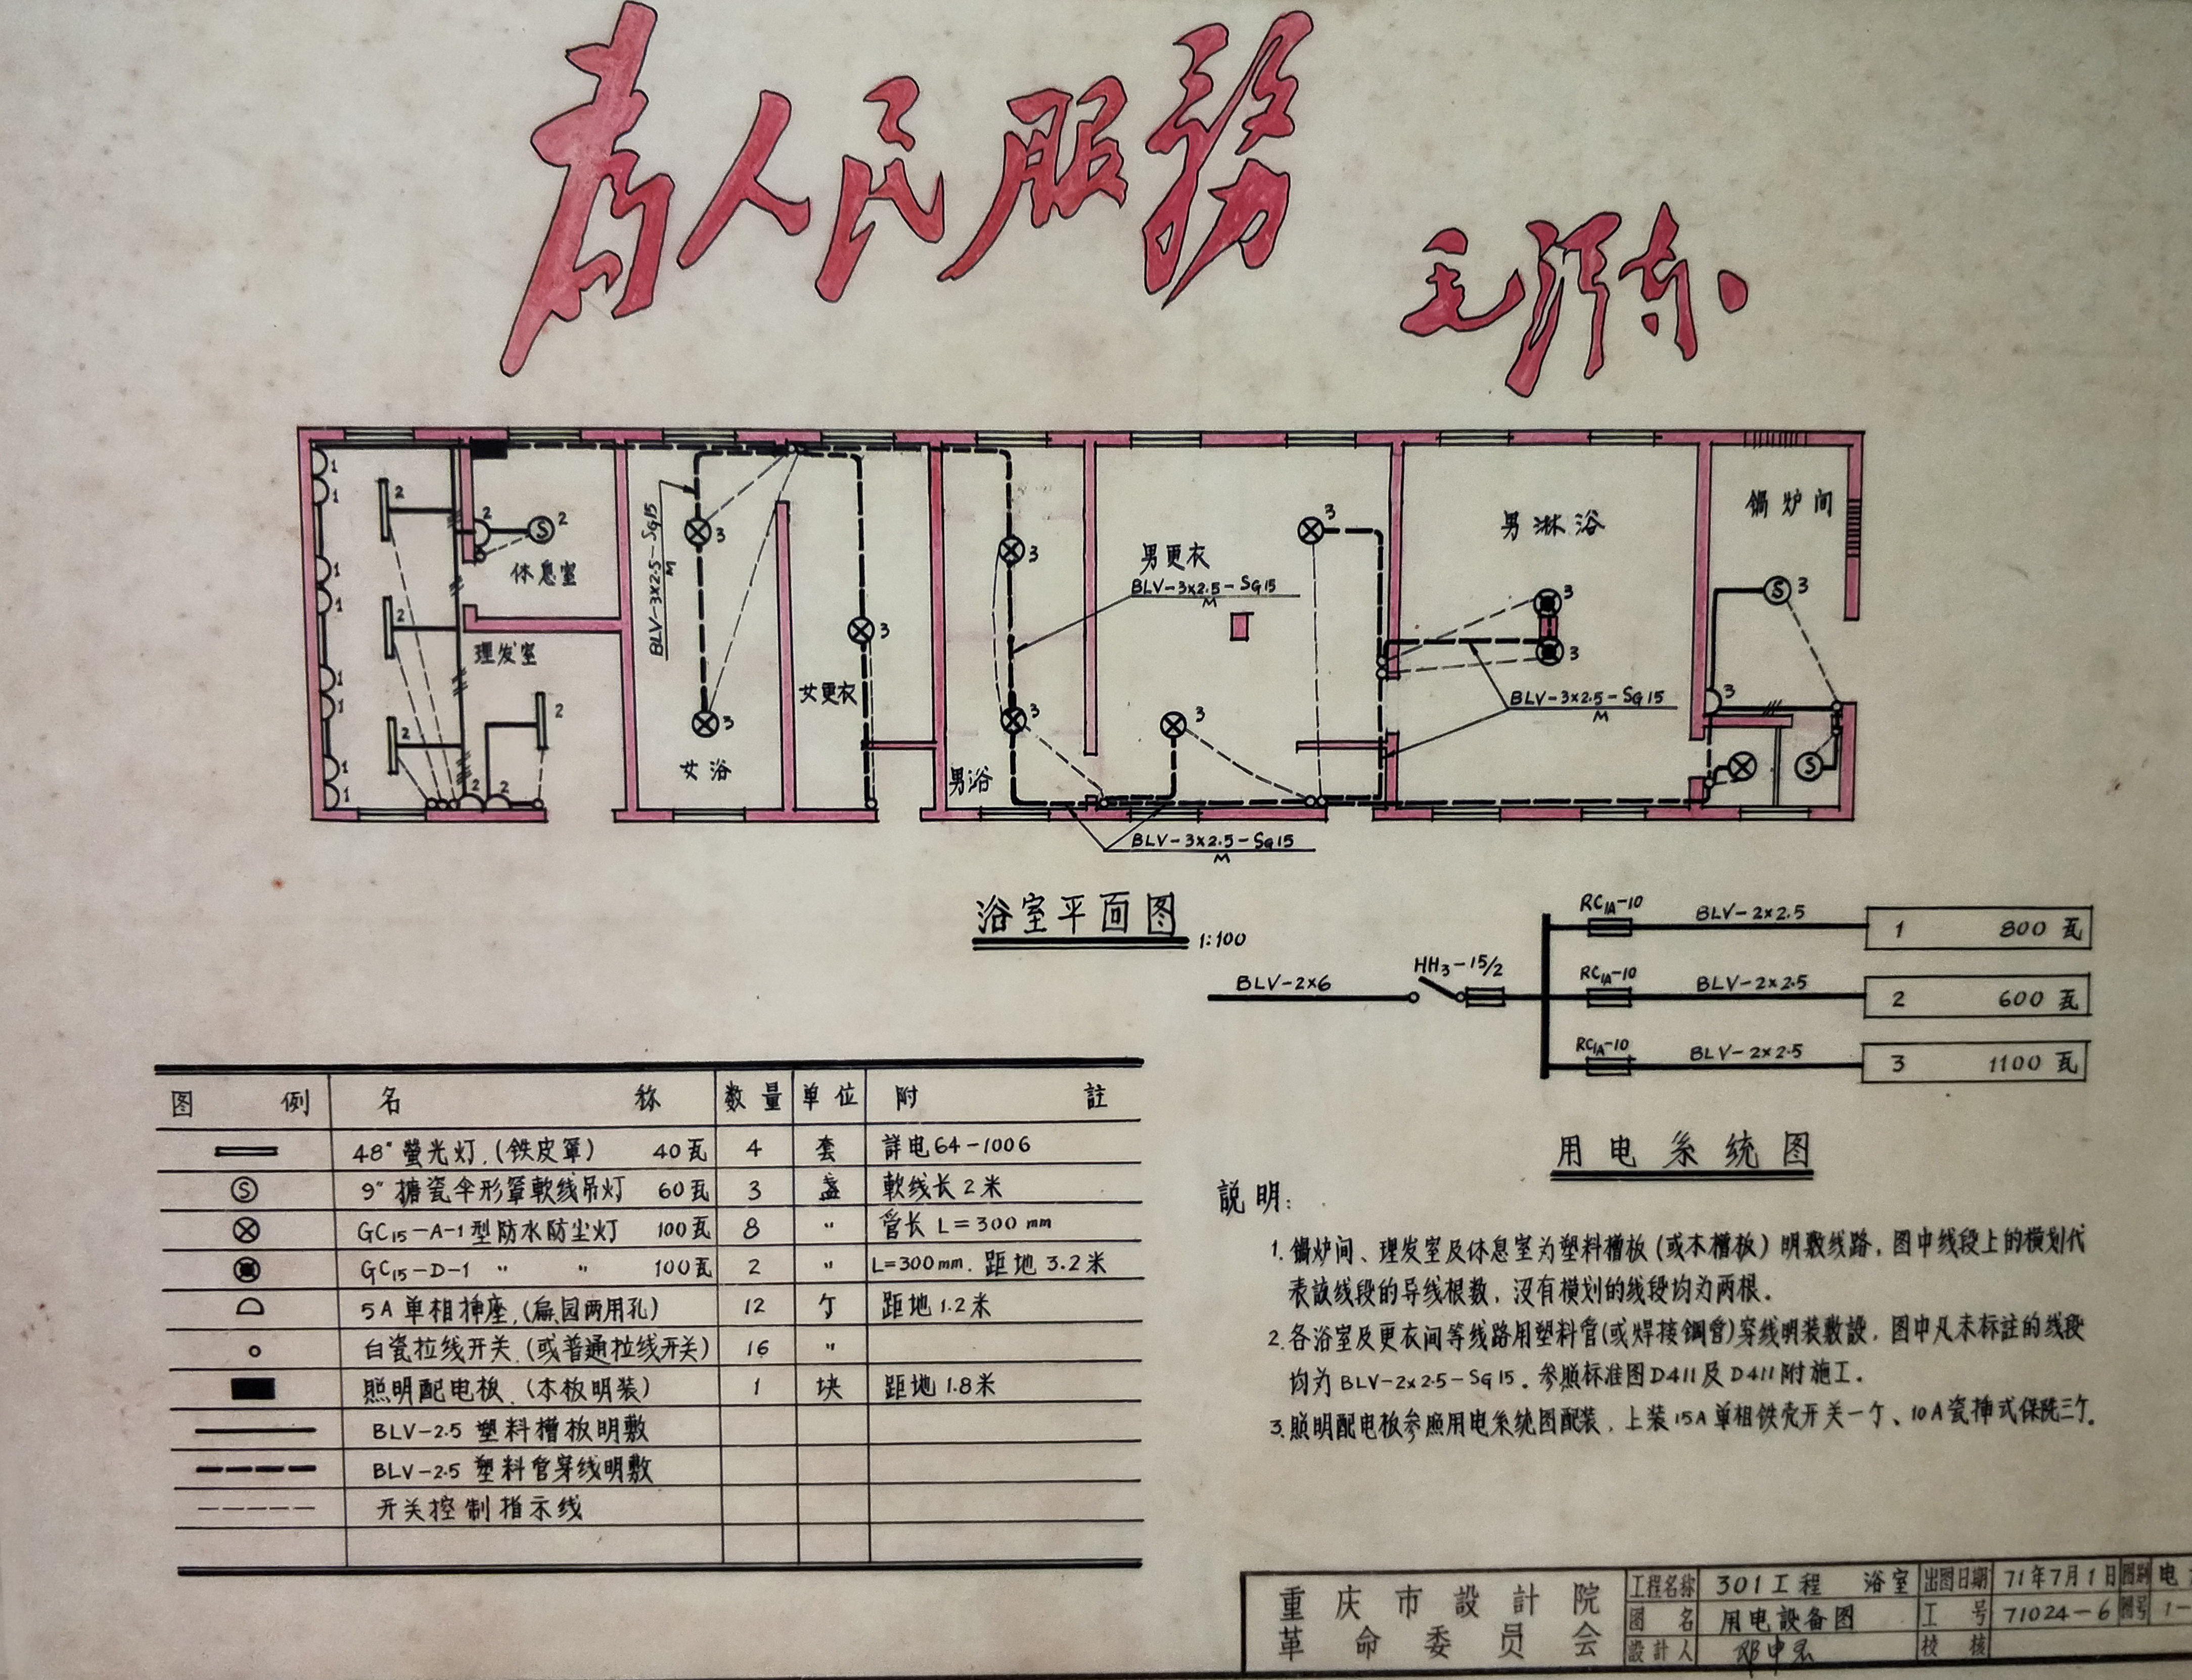 为人民服務
毛泽东
休息室
理发室
女浴
女更衣
男浴
男更衣
男淋浴
锅炉间
BLV-3x2.5-SG15
M
BLV-3x2.5-SG15
M
BLV-3x2.5-SG15
M
BLV-3x2.5-SG15
M
浴室平面图 1:100
BLV-2x6
HH3-15/2
RC1A-10 BLV-2x2.5 1 800瓦
RC1A-10 BLV-2x2.5 2 600瓦
RC1A-10 BLV-2x2.5 3 1100瓦
用电系统图
图例 名称 数量 单位 附註
48"螢光灯.(铁皮罩) 40瓦 4 套 詳电64-1006
9"搪瓷伞形罩軟线吊灯 60瓦 3 盏 軟线长2米
GC15-A-1型防水防尘灯 100瓦 8 〃 管长 L=300mm
GC15-D-1 〃 〃 100瓦 2 〃 L=300mm. 距地3.2米
5A单相挿座.(扁.园两用孔) 12 个 距地1.2米
白瓷拉线开关.(或普通拉线开关) 16 〃
照明配电板.(木板明装) 1 块 距地1.8米
BLV-2.5 塑料槽板明敷
BLV-2.5 塑料管穿线明敷
开关控制指示线
說明:
1. 锅炉间、理发室及休息室为塑料槽板(或木槽板)明敷线路.图中线段上的横划代
表該线段的导线根数,没有横划的线段均为两根.
2. 各浴室及更衣间等线路用塑料管(或焊接鋼管)穿线明装敷設.图中凡未标註的线段
均为BLV-2x2.5-SG15.参照标准图D411及D411附施工.
3. 照明配电板参照用电系统图配装.上装15A单相铁壳开关一个、10A瓷挿式保险三个.
重庆市設計院
革命委员会
工程名称 301工程 浴室 出图日期 71年7月1日 图别 电
图名 用电設备图 工号 71024-6 图号 1-
設計人 校核